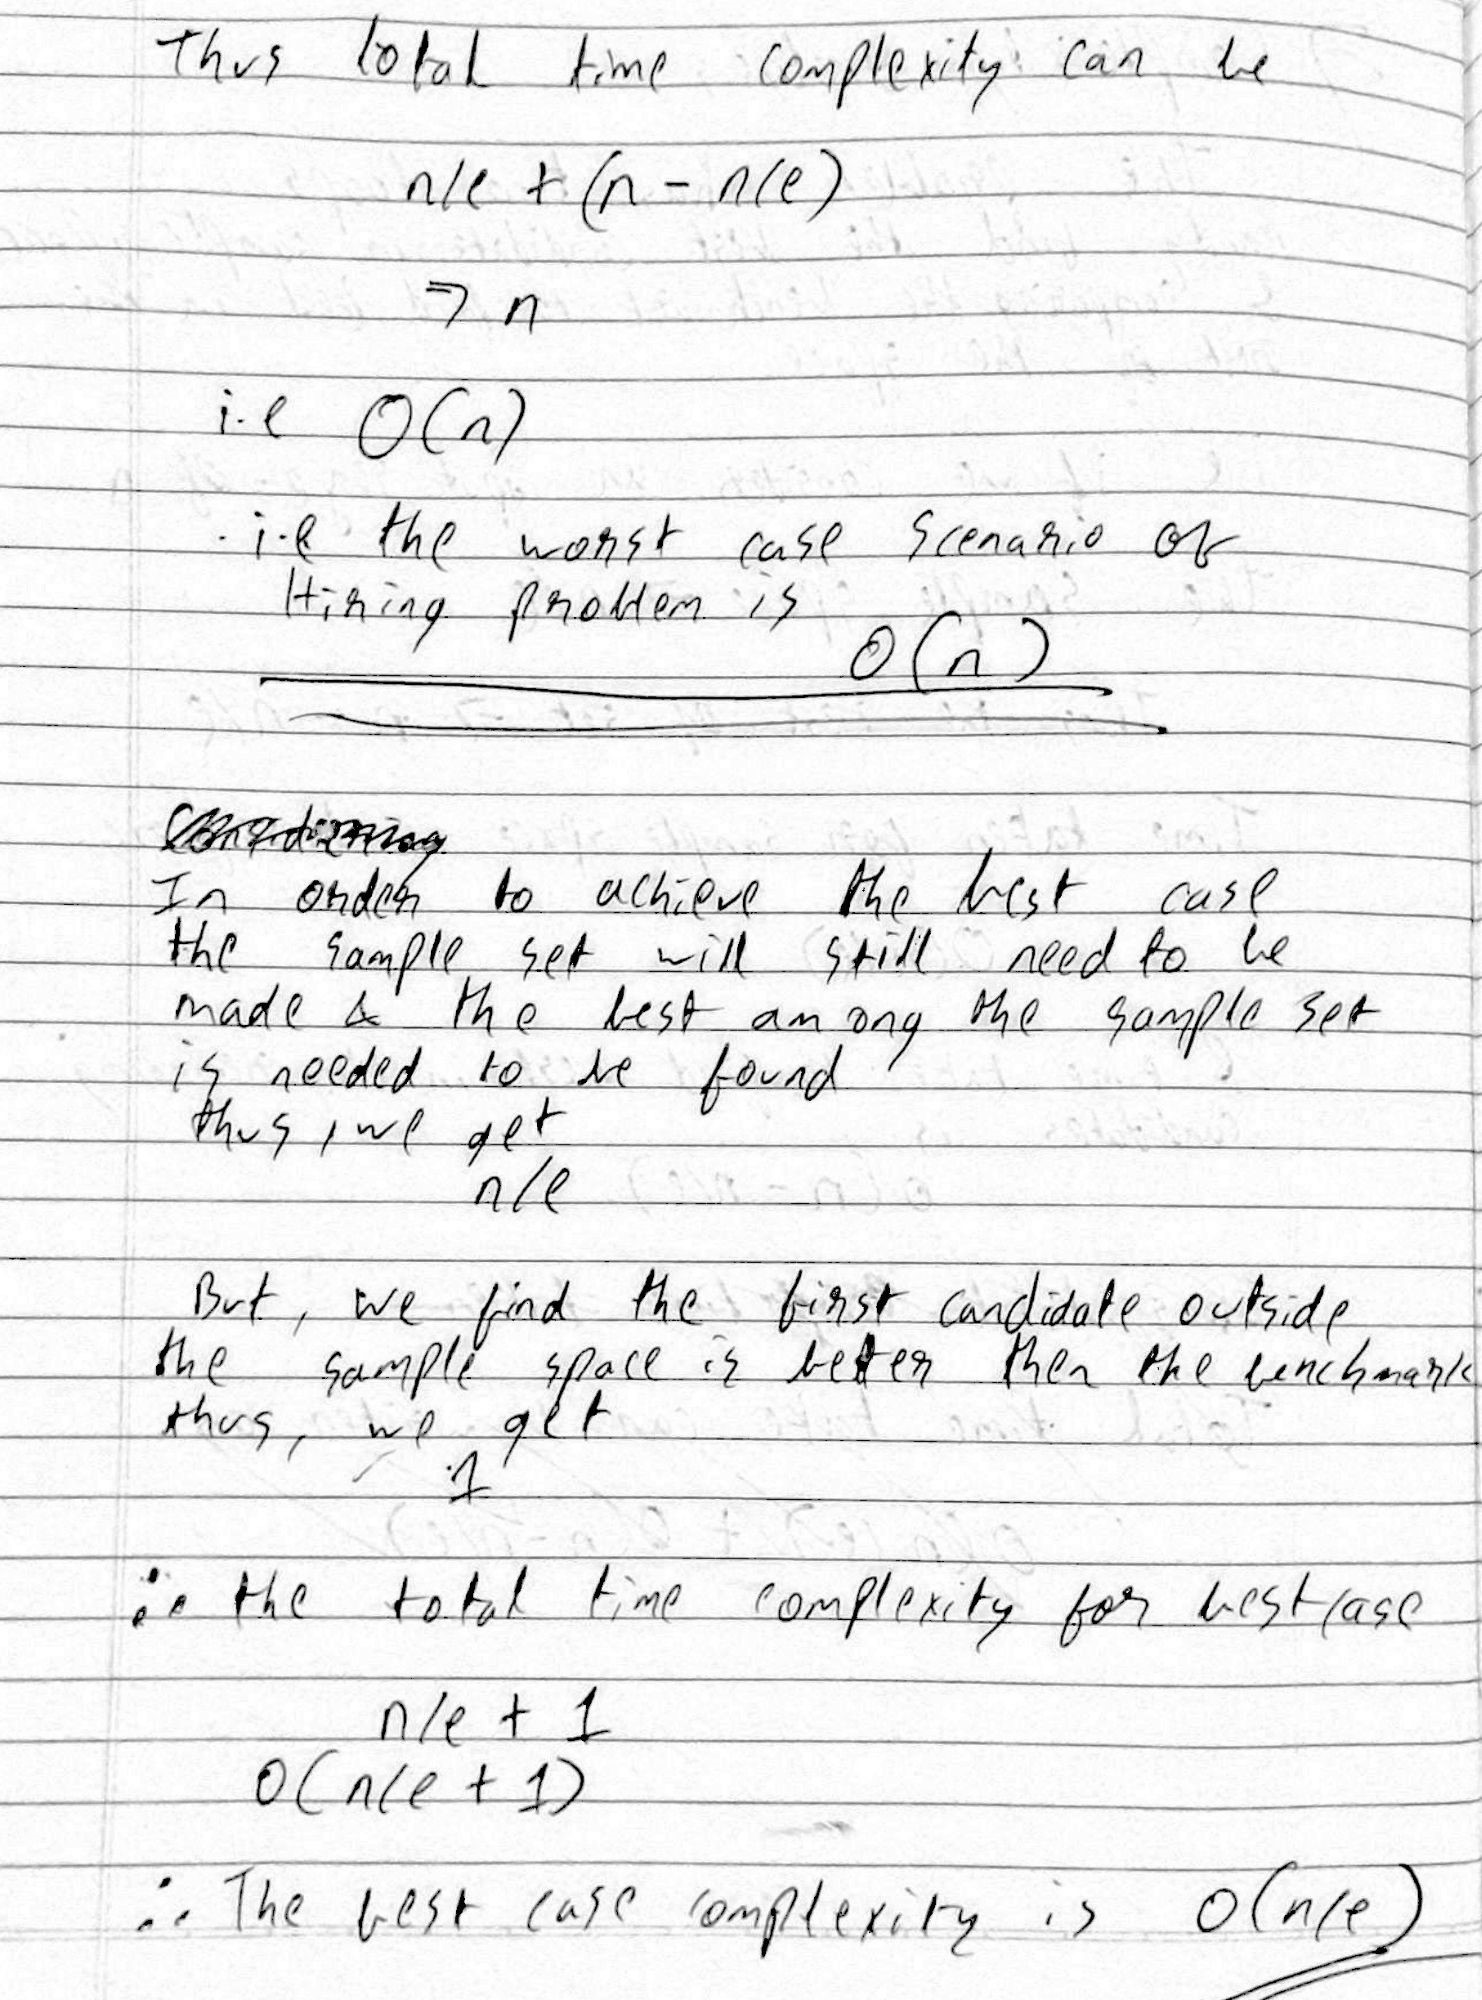 Thus total time complexity can be
n/e + (n - n/e)
⇒ n
i.e O(n)
i.e the worst case scenario of
Hiring problem is
O(n)
Considering
In order to achieve the best case
the sample set will still need to be
made & the best among the sample set
is needed to be found
thus, we get
n/e
But, we find the first candidate outside
the sample space is better then the benchmark
thus, we get
1
∴ the total time complexity for best case
n/e + 1
O(n/e + 1)
∴ The best case complexity is O(n/e)